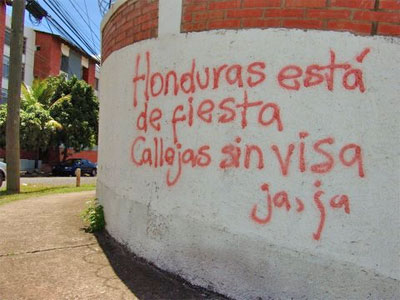 Honduras está
de fiesta
Callejas sin visa
ja, ja